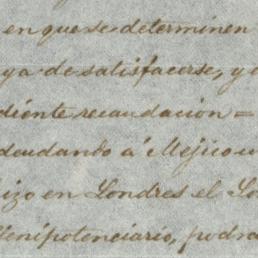 en que se determinen
ya de satisfacerse, y
diente recaudacion =
deudando á Mejico
izo en Londres el
lenipotenciario, podra